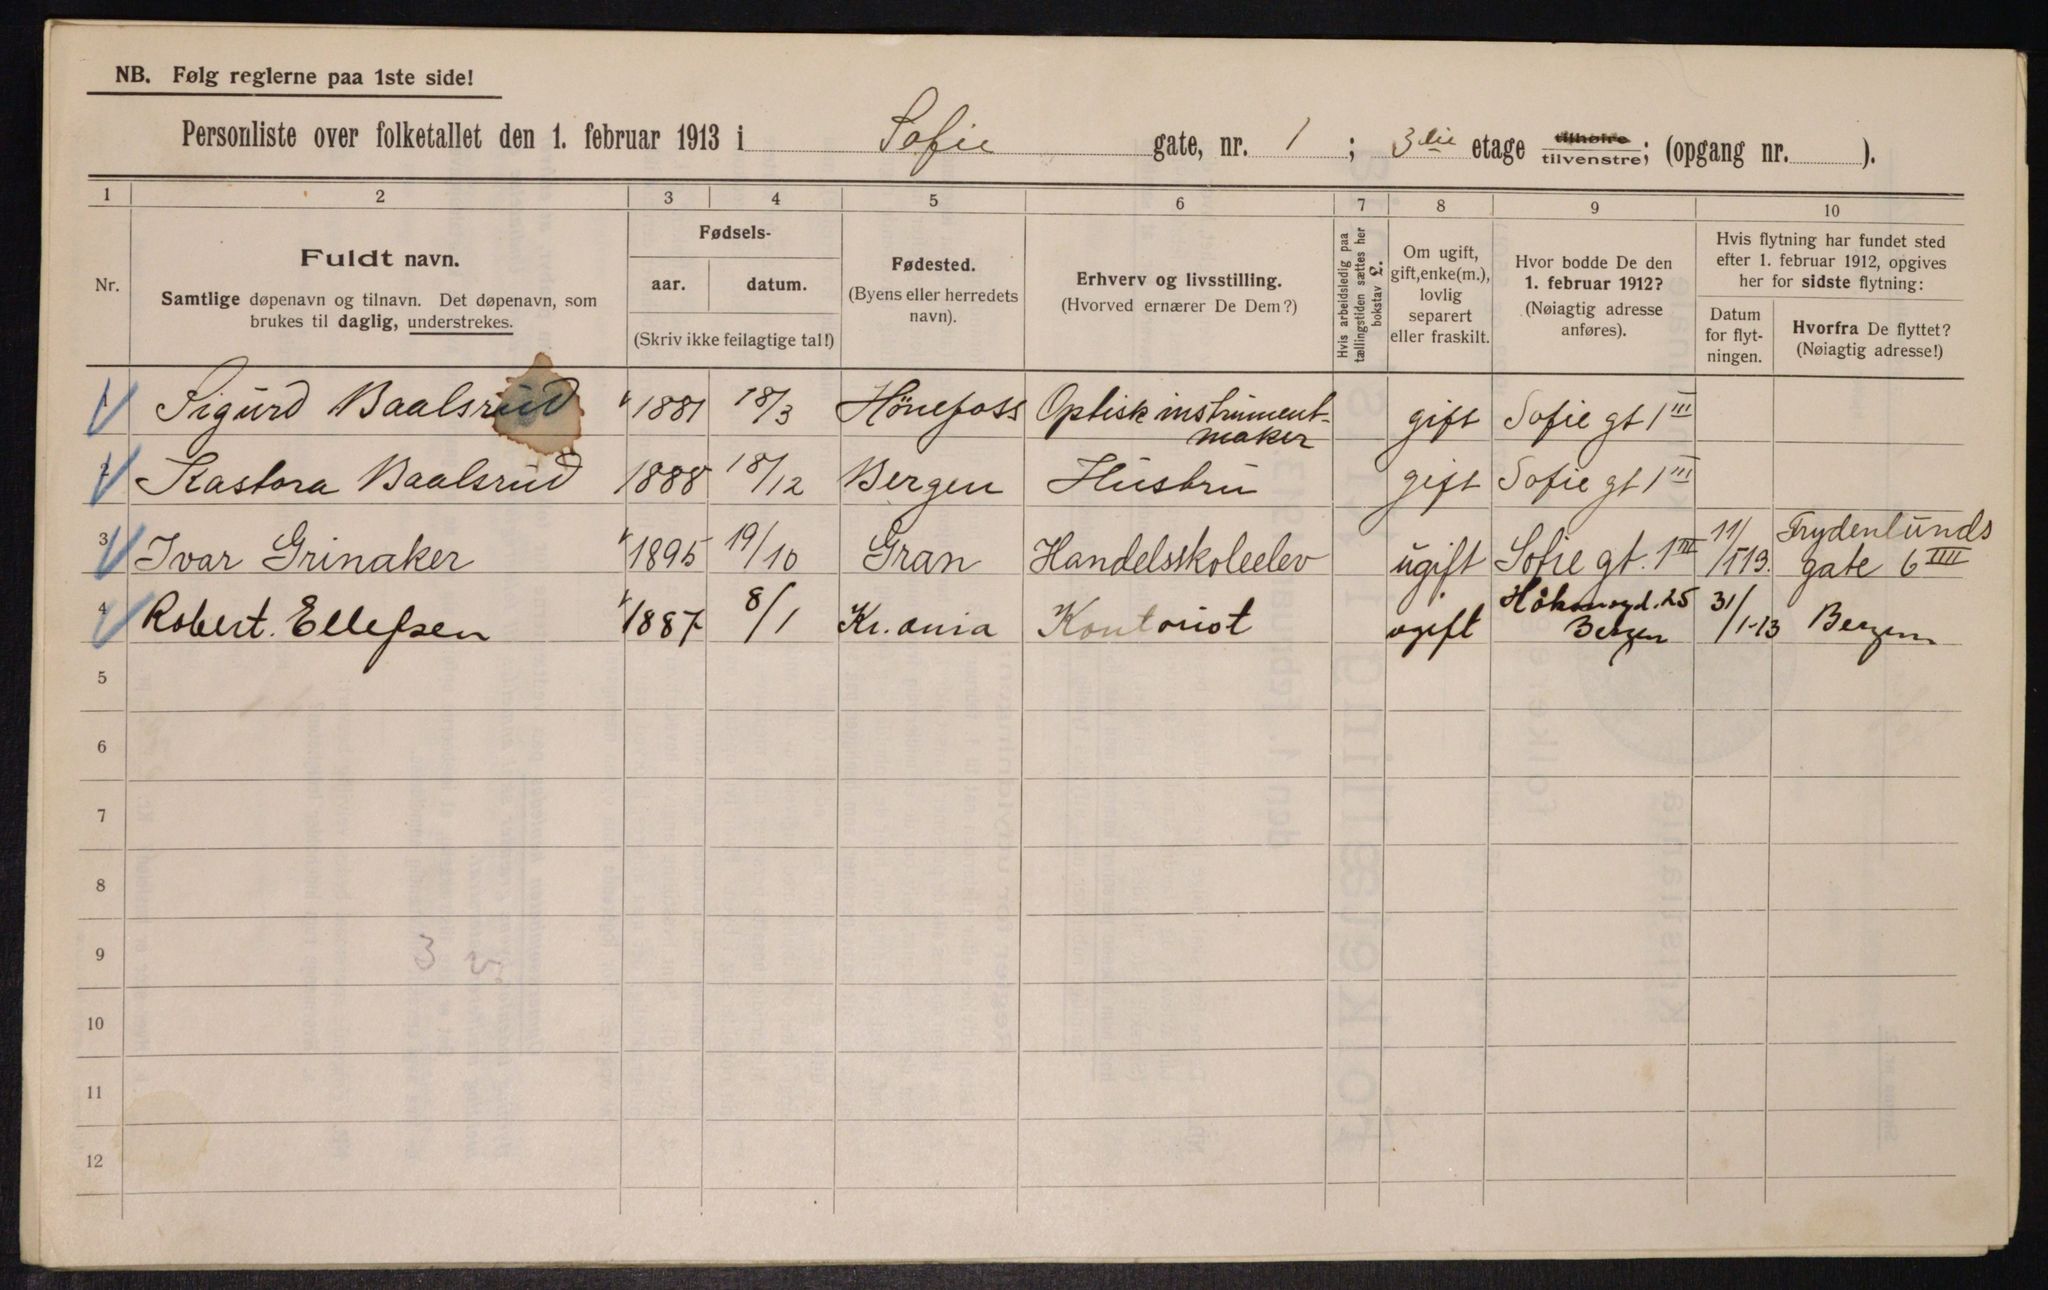 NB. Følg reglerne paa 1ste side!
Personliste over folketallet den 1. februar 1913 i Sofie gate, nr. 1; 3die etage tilhøire tilvenstre; (opgang nr. ).
1 2 3 4 5 6 7 8 9 10
Nr.
Fuldt navn.
Samtlige døpenavn og tilnavn. Det døpenavn, som
brukes til daglig, understrekes.
Fødsels-
aar. datum.
(Skriv ikke feilagtige tal!)
Fødested.
(Byens eller herredets
navn).
Erhverv og livsstilling.
(Hvorved ernærer De Dem?)
Hvis arbeidsledig paa
tællingstiden sættes her
bokstav L.
Om ugift,
gift, enke(m.),
lovlig
separert
eller fraskilt.
Hvor bodde De den
1. februar 1912?
(Nøiagtig adresse
anføres).
Hvis flytning har fundet sted
efter 1. februar 1912, opgives
her for sidste flytning:
Datum
for flyt-
ningen.
Hvorfra De flyttet?
(Nøiagtig adresse!)
1 Sigurd Baalsrud 1881 18/3 Hönefoss Optisk instrument-
maker gift Sofie gt 1 III
2 Kastora Baalsrud 1888 18/12 Bergen Hustru gift Sofie gt 1 III
3 Ivar Grinaker 1895 19/10 Gran Handelsskoleelev ugift Sofie gt. 1 III 11/1 13. Frydenlunds
gate 6 IIII
4 Robert. Ellefsen 1887 8/1 Kr.ania Kontorist ugift 25
Bergen 31/1-13 Bergen
5
6
7
8
9
10
11
12
3